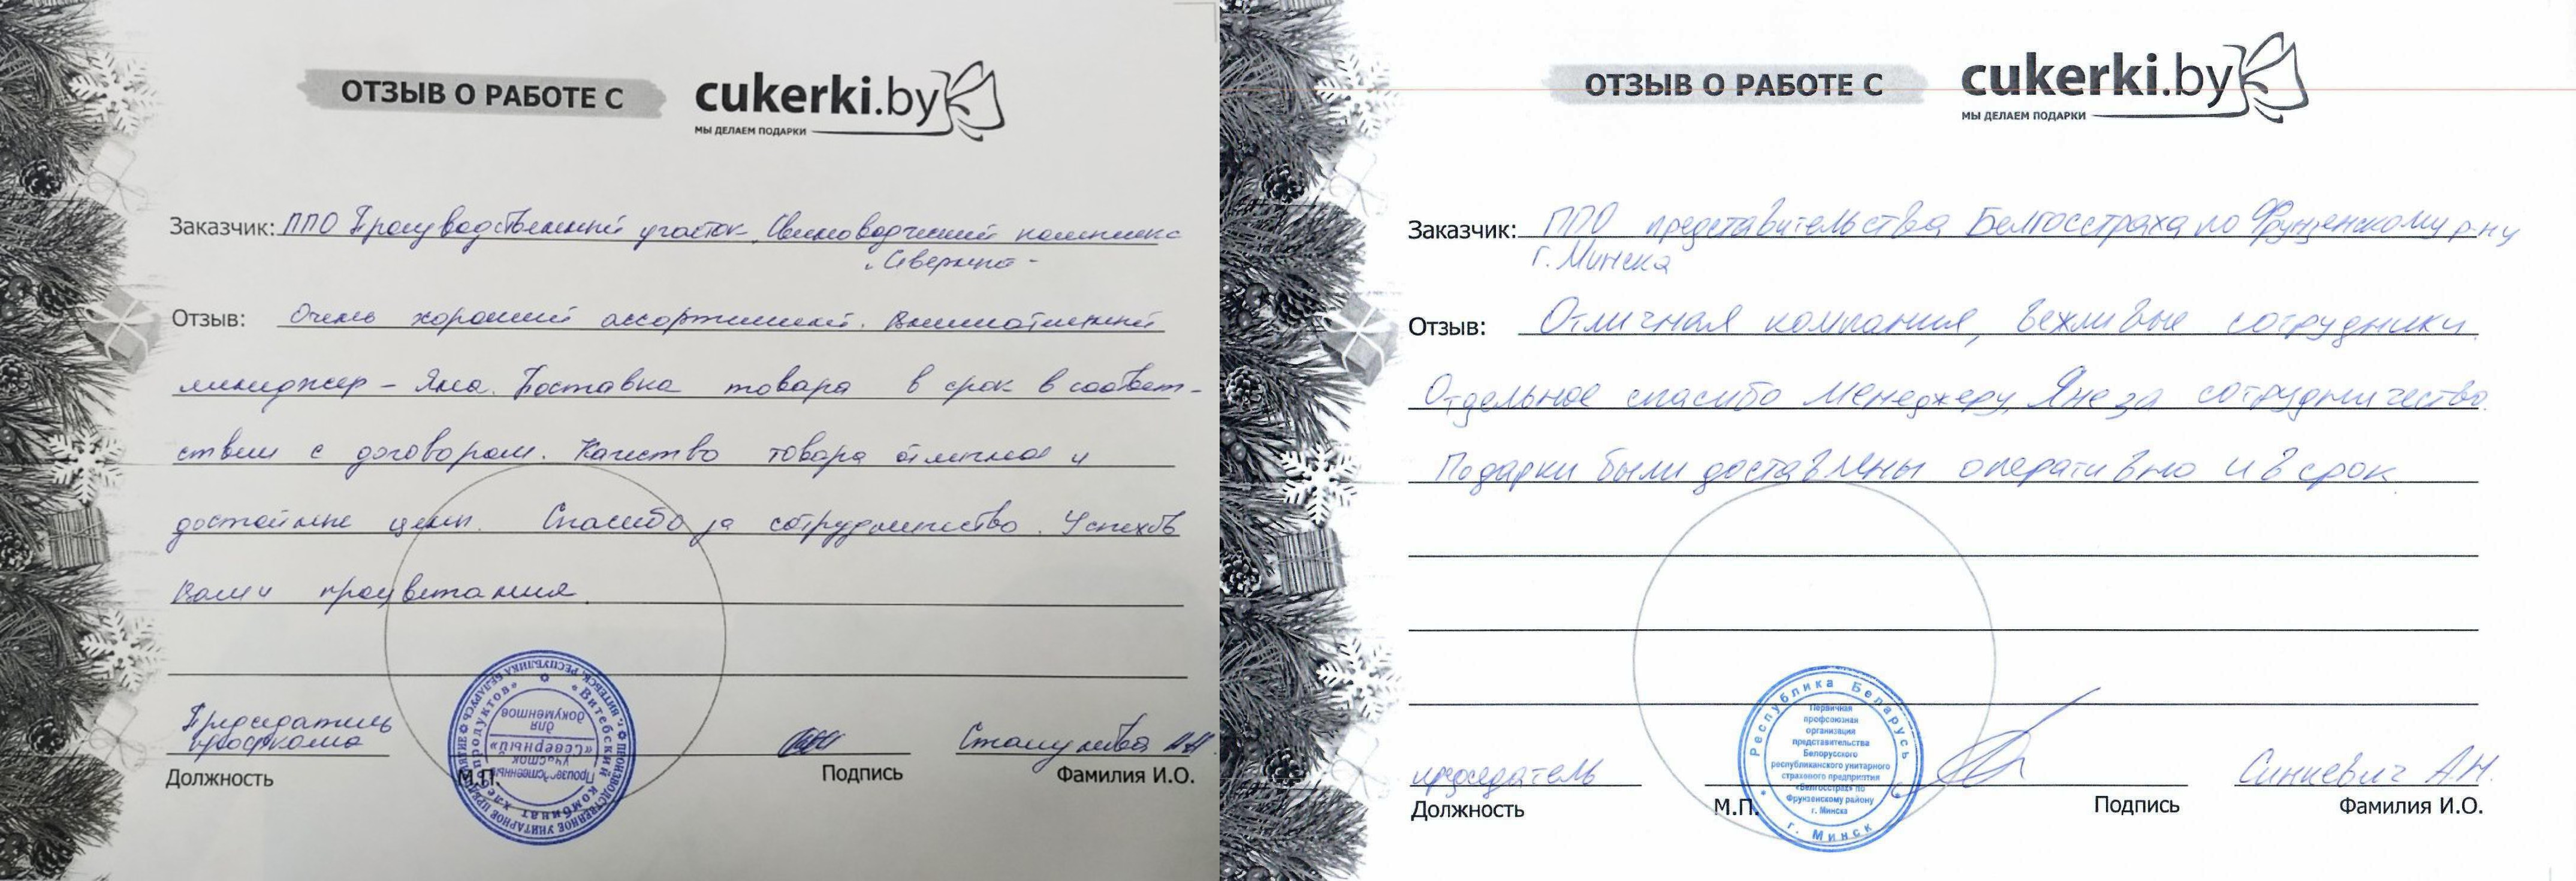 ОТЗЫВ О РАБОТЕ С cukerki.by
МЫ ДЕЛАЕМ ПОДАРКИ
Заказчик: ППО Производственный участок Свиноводческий комплекс
Отзыв: Очень хороший ассортимент. Внимательный
менеджер - Яна. Доставка товара в срок в соответ-
ствии с договором. Качество товара отличное и
достойные цены. Спасибо за сотрудничество. Успехов
Вам и процветания.
Председатель
профкома
Должность М.П. Подпись Фамилия И.О.
ПРОИЗВОДСТВЕННОЕ УНИТАРНОЕ ПРЕДПРИЯТИЕ
«Витебский комбинат хлебопродуктов»
Производственный
участок
«Северный»
для
документов
ОТЗЫВ О РАБОТЕ С cukerki.by
МЫ ДЕЛАЕМ ПОДАРКИ
Заказчик: ППО представительства Белгосстраха по Фрунзенскому р-ну
г. Минска
Отзыв: Отличная компания, вежливые сотрудники
Отдельное спасибо менеджеру Яне за сотрудничество
Подарки были доставлены оперативно и в срок
председатель Синкевич А.Н.
Должность М.П. Подпись Фамилия И.О.
Республика Беларусь
Первичная
профсоюзная
организация
представительства
Белорусского
республиканского унитарного
страхового предприятия
«Белгосстрах» по
Фрунзенскому району
г. Минска
г. Минск